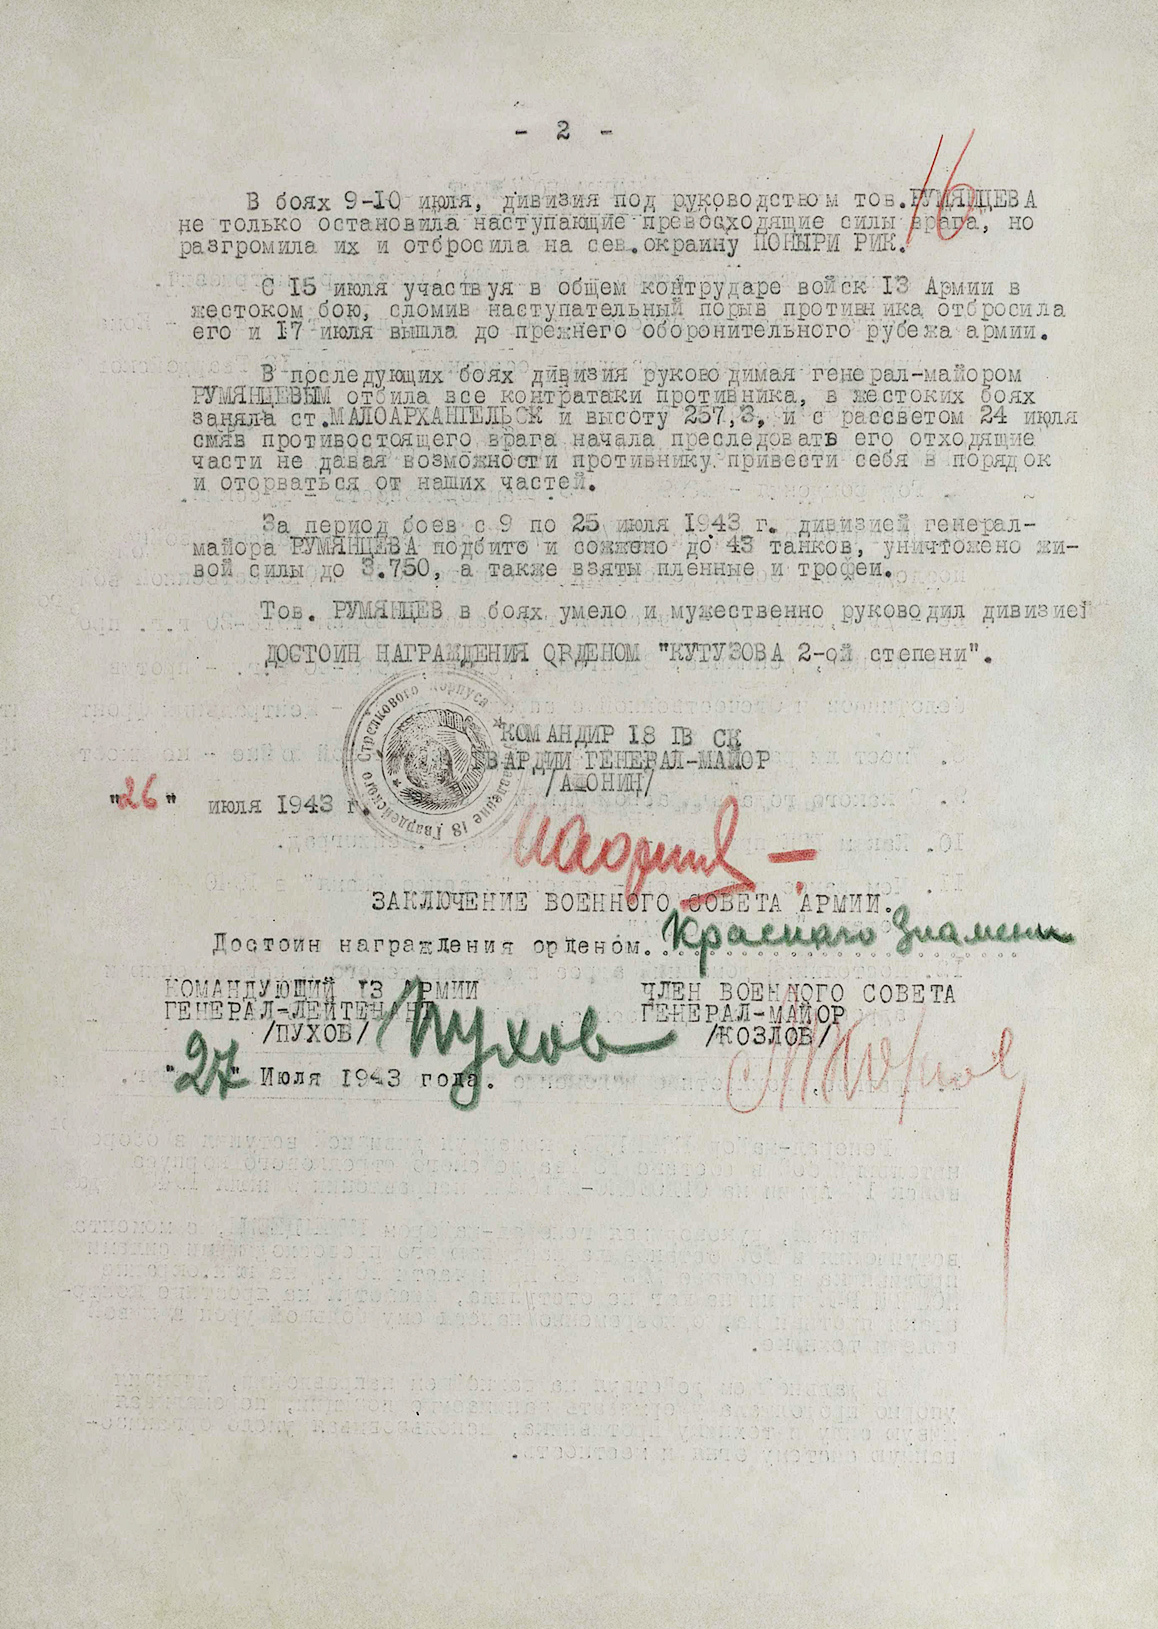 - 2 -
16
В боях 9-10 июля, дивизия под руководством тов.РУМЯНЦЕВА
не только остановила наступающие превосходящие силы врага, но
разгромила их и отбросила на сев.окраину ПОНЫРИ РИК.
С 15 июля участвуя в общем контрударе войск 13 Армии в
жестоком бою, сломив наступательный порыв противника отбросила
его и 17 июля вышла до прежнего оборонительного рубежа армии.
В последующих боях дивизия руководимая генерал-майором
РУМЯНЦЕВЫМ отбила все контратаки противника, в жестоких боях
заняла ст.МАЛОАРХАНГЕЛЬСК и высоту 257,3, и с рассветом 24 июля
смяв противостоящего врага начала преследовать его отходящие
части не давая возможности противнику привести себя в порядок
и оторваться от наших частей.
За период боев с 9 по 25 июля 1943 г. дивизией генерал-
майора РУМЯНЦЕВА подбито и сожжено до 43 танков, уничтожено жи-
вой силы до 3.750, а также взяты пленные и трофеи.
Тов. РУМЯНЦЕВ в боях умело и мужественно руководил дивизией
ДОСТОИН НАГРАЖДЕНИЯ ОРДЕНОМ "КУТУЗОВА 2-ой степени".
Управление 18 Гвардейского Стрелкового Корпуса
КОМАНДИР 18 ГВ СК
ГВАРДИИ ГЕНЕРАЛ-МАЙОР
/АФОНИН/
"26" июля 1943 г.
ЗАКЛЮЧЕНИЕ ВОЕННОГО СОВЕТА АРМИИ.
Достоин награждения орденом. Красного Знамени
КОМАНДУЮЩИЙ 13 АРМИИ
ГЕНЕРАЛ-ЛЕЙТЕНАНТ
/ПУХОВ/ Пухов
"27" Июля 1943 года.
ЧЛЕН ВОЕННОГО СОВЕТА
ГЕНЕРАЛ-МАЙОР
/КОЗЛОВ/